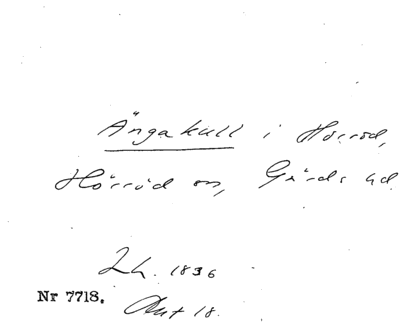 Ängakull i Hörröd,
Hörröd sn, Gärds hd
Lh. 1836
Nr 7718.
Akt 18.